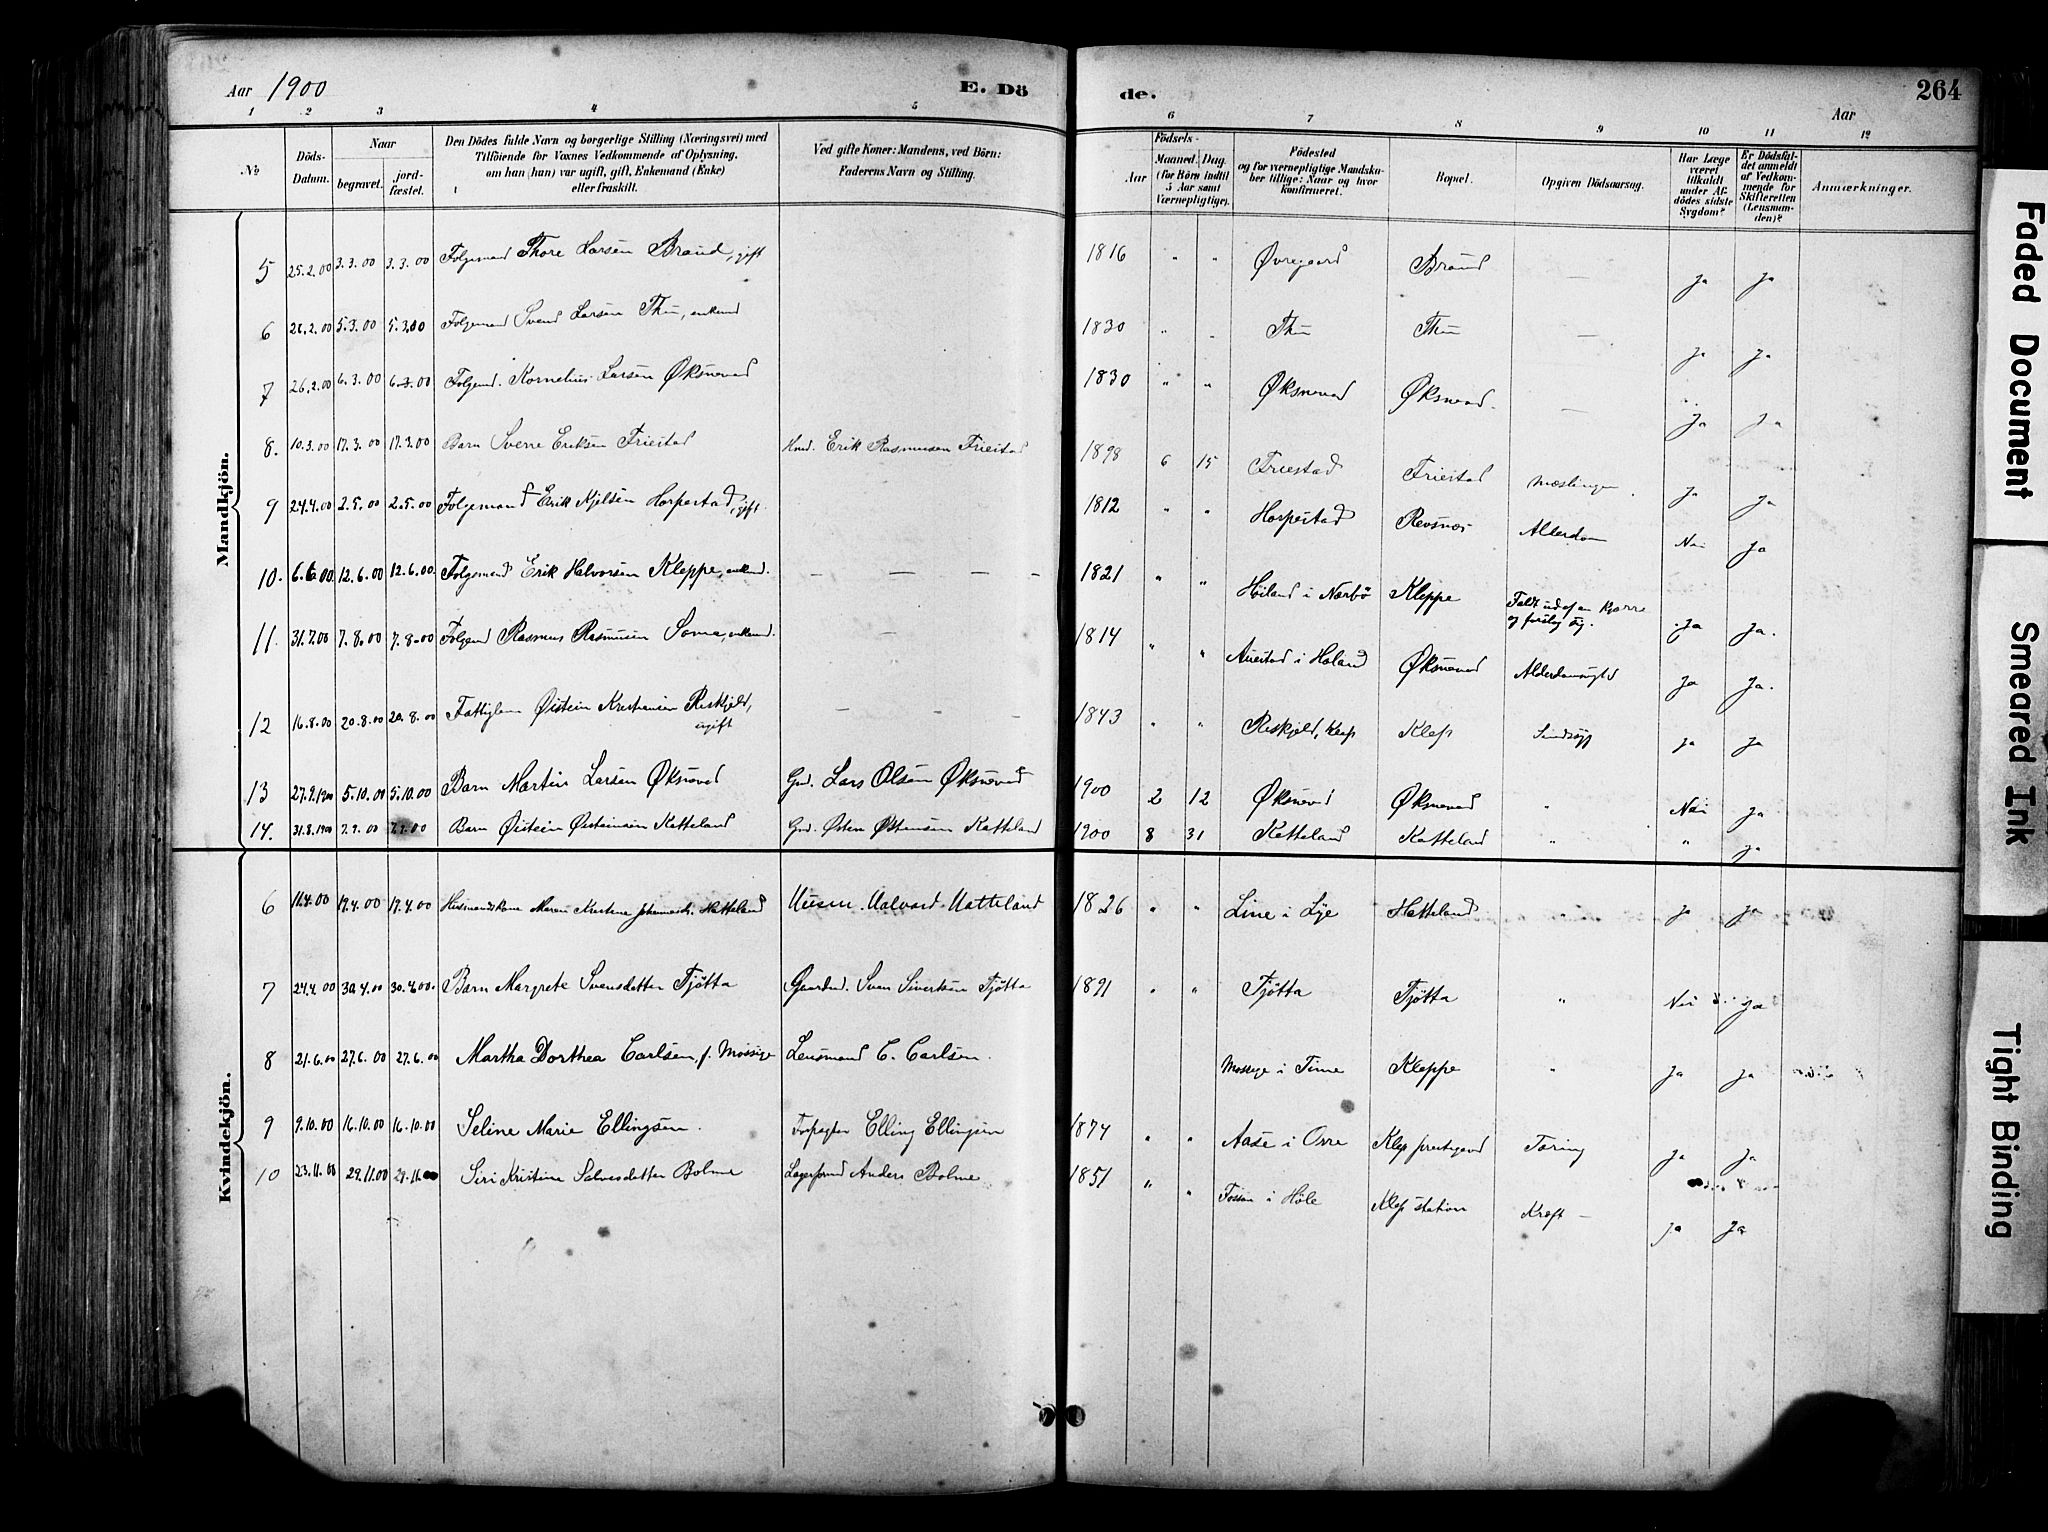 Aar 1900
E. Dö
de.
264
Aar
1 2 3 4 5 6 7 8 9 10 11 12
No
Döds-Datum.
Naar
begravet.
jord-fæstet.
Den Dödes fulde Navn og borgerlige Stilling (Næringsvei) med
Tilföiende for Voxnes Vedkommende af Oplysning,
om han (hun) var ugift, gift, Enkemand (Enke)
eller fraskilt.
Ved gifte Koner: Mandens, ved Börn:
Faderens Navn og Stilling.
Födsels-
Aar
Maaned. Dag.
(for Börn indtil
5 Aar samt
Værnepligtige).
Födested
og for værnepligtige Mandska-
ber tillige: Naar og hvor
konfirmeret.
Bopæl.
Opgiven Dödsaarsag.
Har Læge
været
tilkaldt
under Af-
dödes sidste
Sygdom?
Er Dödsfal-
det anmeldt
af Vedkom-
mende for
Skifteretten
(Lensman-
den)?
Anmærkninger.
Mandkjön.
5 25.2.00 3.3.00 3.3.00 Folgemand Thore Larsen Braud, gift 1816 " " Øvregaard Braud — Ja Ja
6 2.00 5.3.00 5.3.00 Folgemand Svend Larsen Thu, enkemd 1830 " " Thu Thu — Ja Ja
7 26.2.00 6.3.00 6.3.00 Folgemd. Kornelius Larsen Øksnevad 1830 " " Øksnevad Øksnevad. — Ja Ja
8. 10.3.00 17.3.00 17.3.00 Barn Sverre Eriksen Friestad Hmd. Erik Rasmussen Friestad 1898 6 15 Friestad Friestad Mæslinger. Ja Ja
9 24.4.00 2.5.00 2.5.00 Folgemand Erik Kjelsen Horpestad, gift 1812 " " Horpestad Revsnæs Alderdom Nei Ja
10. 6.6.00 12.6.00 12.6.00. Folgemand Erik Halvorsen Kleppe, enkmd. — — — — 1821 " " Høiland i Nærbö Kleppe Faldt ud af en Kjærre
og forslog sig. Ja Ja.
11. 31.7.00 7.8.00 7.8.00 Folgemd Rasmus Rasmussen Soma, enkemd. — 1814 " " Auestad i Høland Øksnevad Alderdomssvaghed Ja Ja.
12 16.8.00 20.8.00 20.8.00 Fattiglem Øistein Kristiansen Reskjeld,
ugift — — — 1843 " " Reskjeld, Klep Klep Sindssyg Ja Ja
13 27.9.1900 5.10.00 5.10.00 Barn Martin Larsen Øksnevad Gmd. Lars Olsen Øksnevad 1900 2 12 Øksnevad Øksnevad " Nei Ja
14. 31.8.1900 7.9.00 7.9.00 Barn Øistein Øisteinsen Katteland Gmd. Østen Østensen Katteland 1900 8 31 Katteland Katteland " " Ja
Kvindekjön.
6 11.4.00 19.4.00 19.4.00 Husmandskone Maren Kristine Johannesd. Hatteland Halvard Hatteland 1826 " " Line i Lye Hatteland " Ja Ja
7 24.4.00 30.4.00 30.4.00. Barn Margrete Svensdatter Tjøtta Gaardmd. Sven Sivertsen Tjøtta 1891 " " Tjøtta Tjøtta " Nei Ja
8 21.6.00 27.6.00 27.6.00 Martha Dorthea Carlsen, f. Mossige Lensmand C. Carlsen. Mossige i Time Kleppe " Ja Ja
9 9.10.00 16.10.00 16.10.00 Seline Marie Ellingsen. Forpagter Elling Ellingsen 1874 " " Aase i Orre Klep prestegaard Tæring Ja Ja
10 23.11.00 29.11.00 29.11.00 Siri Kristine Salvesdatter Bolme Lagerformd Anders Bolme 1851 " " Fossan i Høle Klep station Kræft — Ja Ja
Faded Document
Smeared Ink
Tight Binding